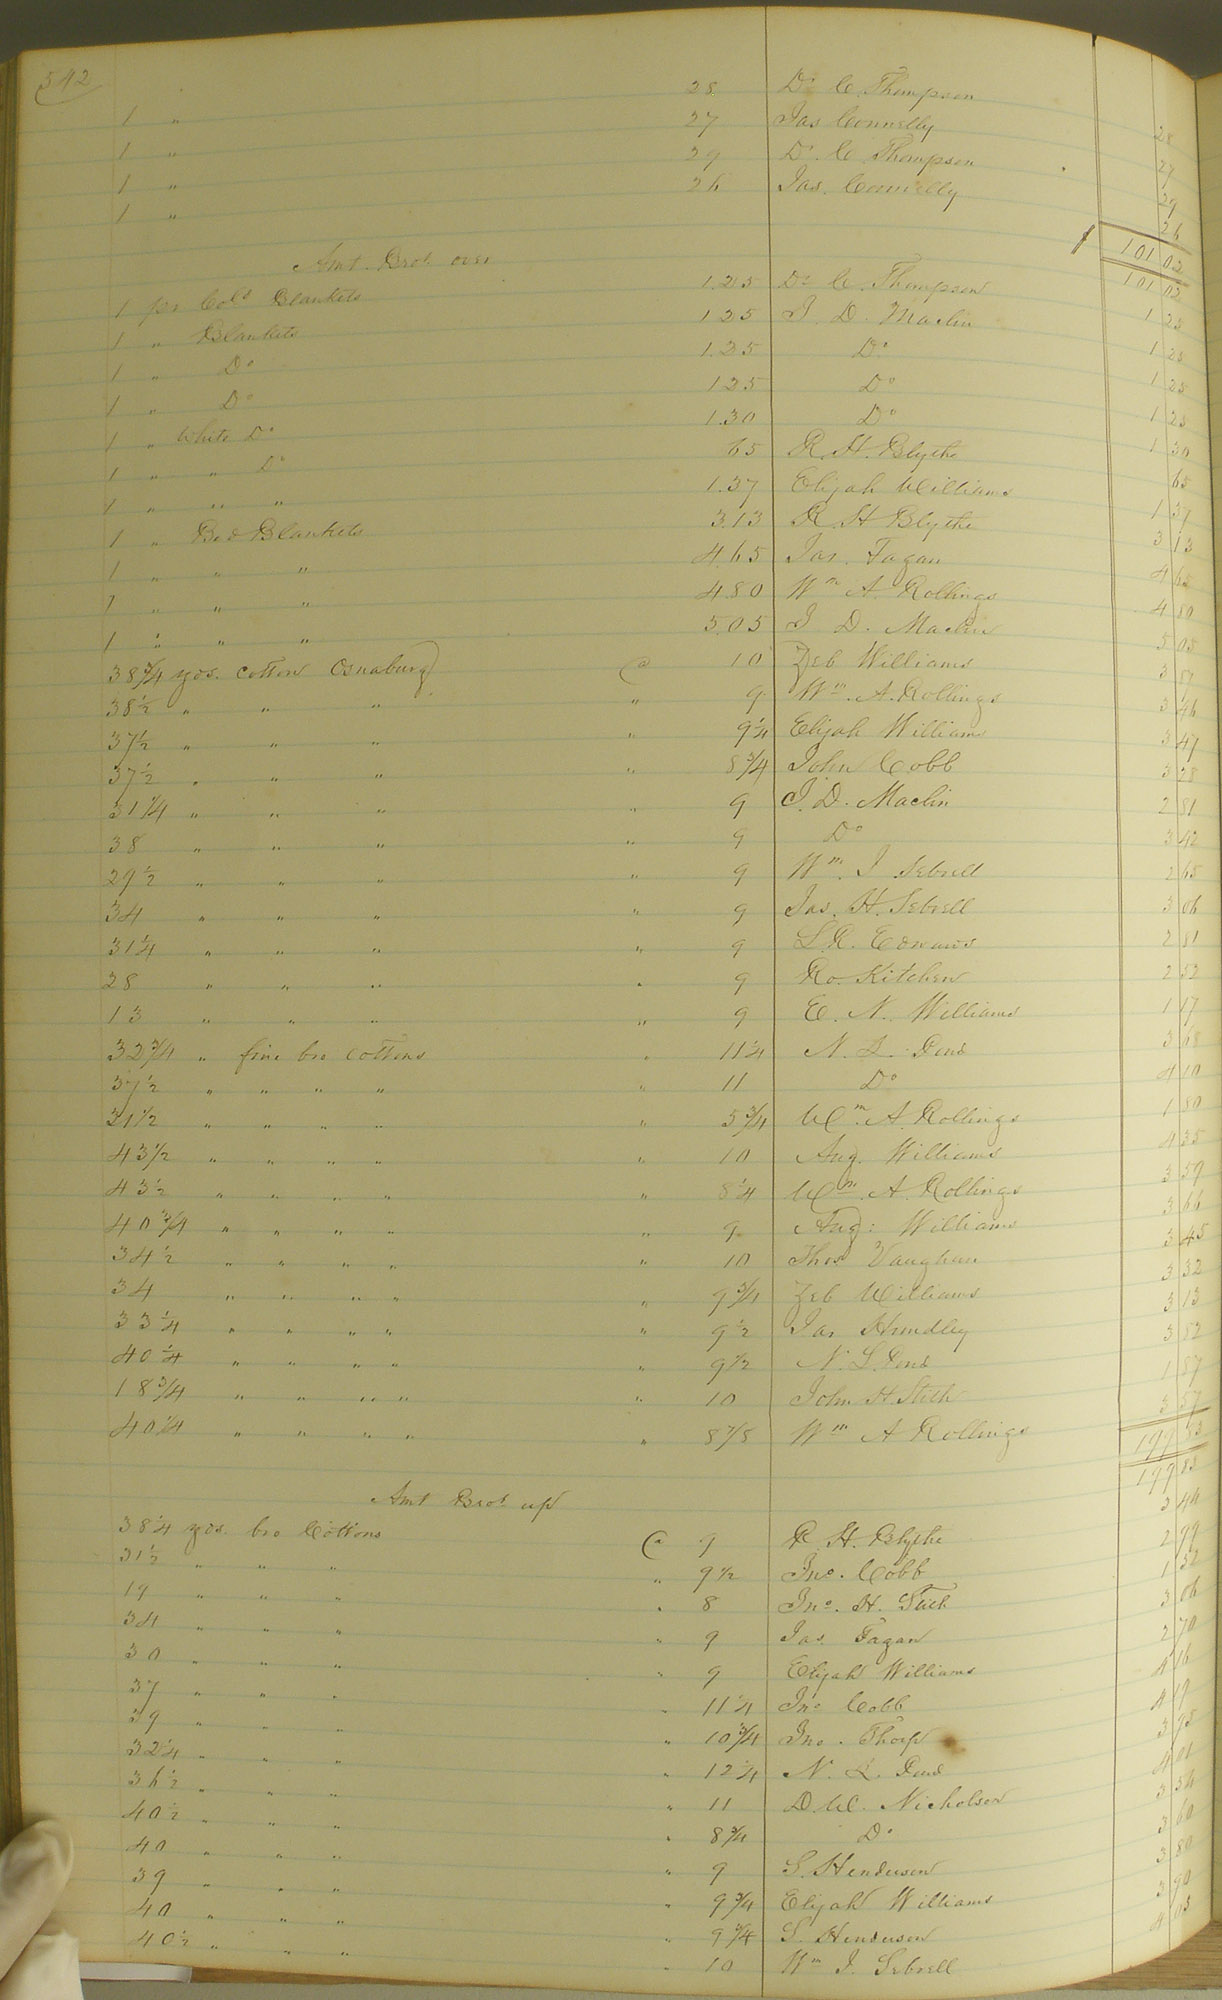 542
1 " 28 Dr C. Thompson 28
1 " 27 Jas Connelly 27
1 " 29 Dr. C. Thompson 29
1 " 26 Jas. Connelly 26
101 02
Amt. Brot. over 101 02
1 pr Cold Blankets 1.25 Dr C. Thompson 1 25
1 " Blankets 125 J. D. Maclin 1 25
1 " Do 1.25 Do 1 25
1 " Do 125 Do 1 25
1 " White Do 1.30 Do 1 30
1 " " Do 65 R. H. Blythe 65
1 " " " 1.37 Elijah Williams 1 37
1 " Bed Blankets 3.13 R. H Blythe 3 13
1 " " " 4.65 Jas. Fagan 4 65
1 " " " 4.80 Wm A. Rollings 4 80
1 " " " 5.05 J D. Maclin 5 05
38 3/4 yds. cotton Osnaburg @ 10 Zeb Williams 3 87
38 1/2 " " " " 9 Wm. A. Rollings 3 46
37 1/2 " " " " 9 1/4 Elijah Williams 3 47
37 1/2 " " " " 8 3/4 John Cobb 3 28
31 1/4 " " " " 9 J. D. Maclin 2 81
38 " " " " 9 Do 3 42
29 1/2 " " " " 9 Wm. J Sebrell 2 65
34 " " " " 9 Jas. H. Sebrell 3 06
31 1/4 " " " " 9 L R. Edwards 2 81
28 " " " " 9 Ro. Kitchen 2 52
13 " " " " 9 E. N. Williams 1 17
32 3/4 " fine bro cottons " 11 1/4 N. L. Pond 3 68
37 1/2 " " " " " 11 Do 4 10
31 1/2 " " " " " 5 3/4 Wm. A. Rollings 1 80
43 1/2 " " " " " 10 Aug. Williams 4 35
43 1/2 " " " " " 8 1/4 Wm. A. Rollings 3 59
40 3/4 " " " " " 9 Aug: Williams 3 66
34 1/2 " " " " " 10 Thos Vaughan 3 45
34 " " " " " 9 3/4 Zeb Williams 3 32
33 1/4 " " " " " 9 1/2 Jas Hundley 3 13
40 1/4 " " " " " 9 1/2 N. L. Pond 3 82
18 3/4 " " " " " 10 John H Stith 1 87
40 1/4 " " " " " 8 7/8 Wm A Rollings 3 57
199 83
Amt Brot. up 199 83
38 1/4 yds. bro Cottons @ 9 R. H. Blythe 3 44
31 1/2 " " " " 9 1/2 Jno. Cobb 2 99
19 " " " " 8 Jno. H. Stith 1 52
34 " " " " 9 Jas. Fagan 3 06
30 " " " " 9 Elijah Williams 2 70
37 " " " " 11 1/4 Jno Cobb 4 16
39 " " " " 10 3/4 Jno. Thorp 4 19
32 1/4 " " " " 12 1/4 N. L. Pond 3 95
36 1/2 " " " " 11 D. W. Nicholson 4 01
40 1/2 " " " " 8 3/4 Do 3 54
40 " " " " 9 S. Henderson 3 60
39 " " " " 9 3/4 Elijah Williams 3 80
40 " " " " 9 3/4 S. Henderson 3 90
40 1/2 " " " " 10 Wm J. Sebrell 4 05